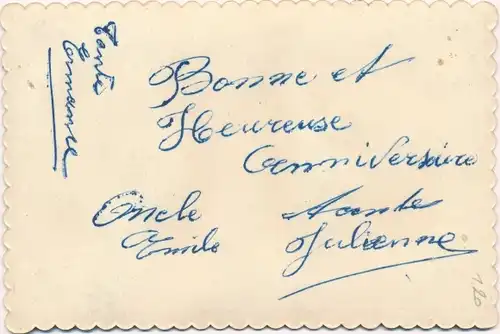 Bonne et
Heureuse
Anniversaire
Oncle tante
Emile Julienne
Tante
120